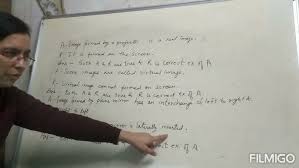 A - Image formed by a projector is a real image.
R - It is formed on the screen.
Ans - Both A & R are true & R is correct ex. of A
A - Some images are called virtual image.
R - Virtual image cannot formed on screen.
Ans - Both A & R are true & R is correct ex. of A
A - Image formed by plane mirror has an interchange of left to right &
to left.
mirror is laterally inverted.
correct ex. of A
FILMIGO